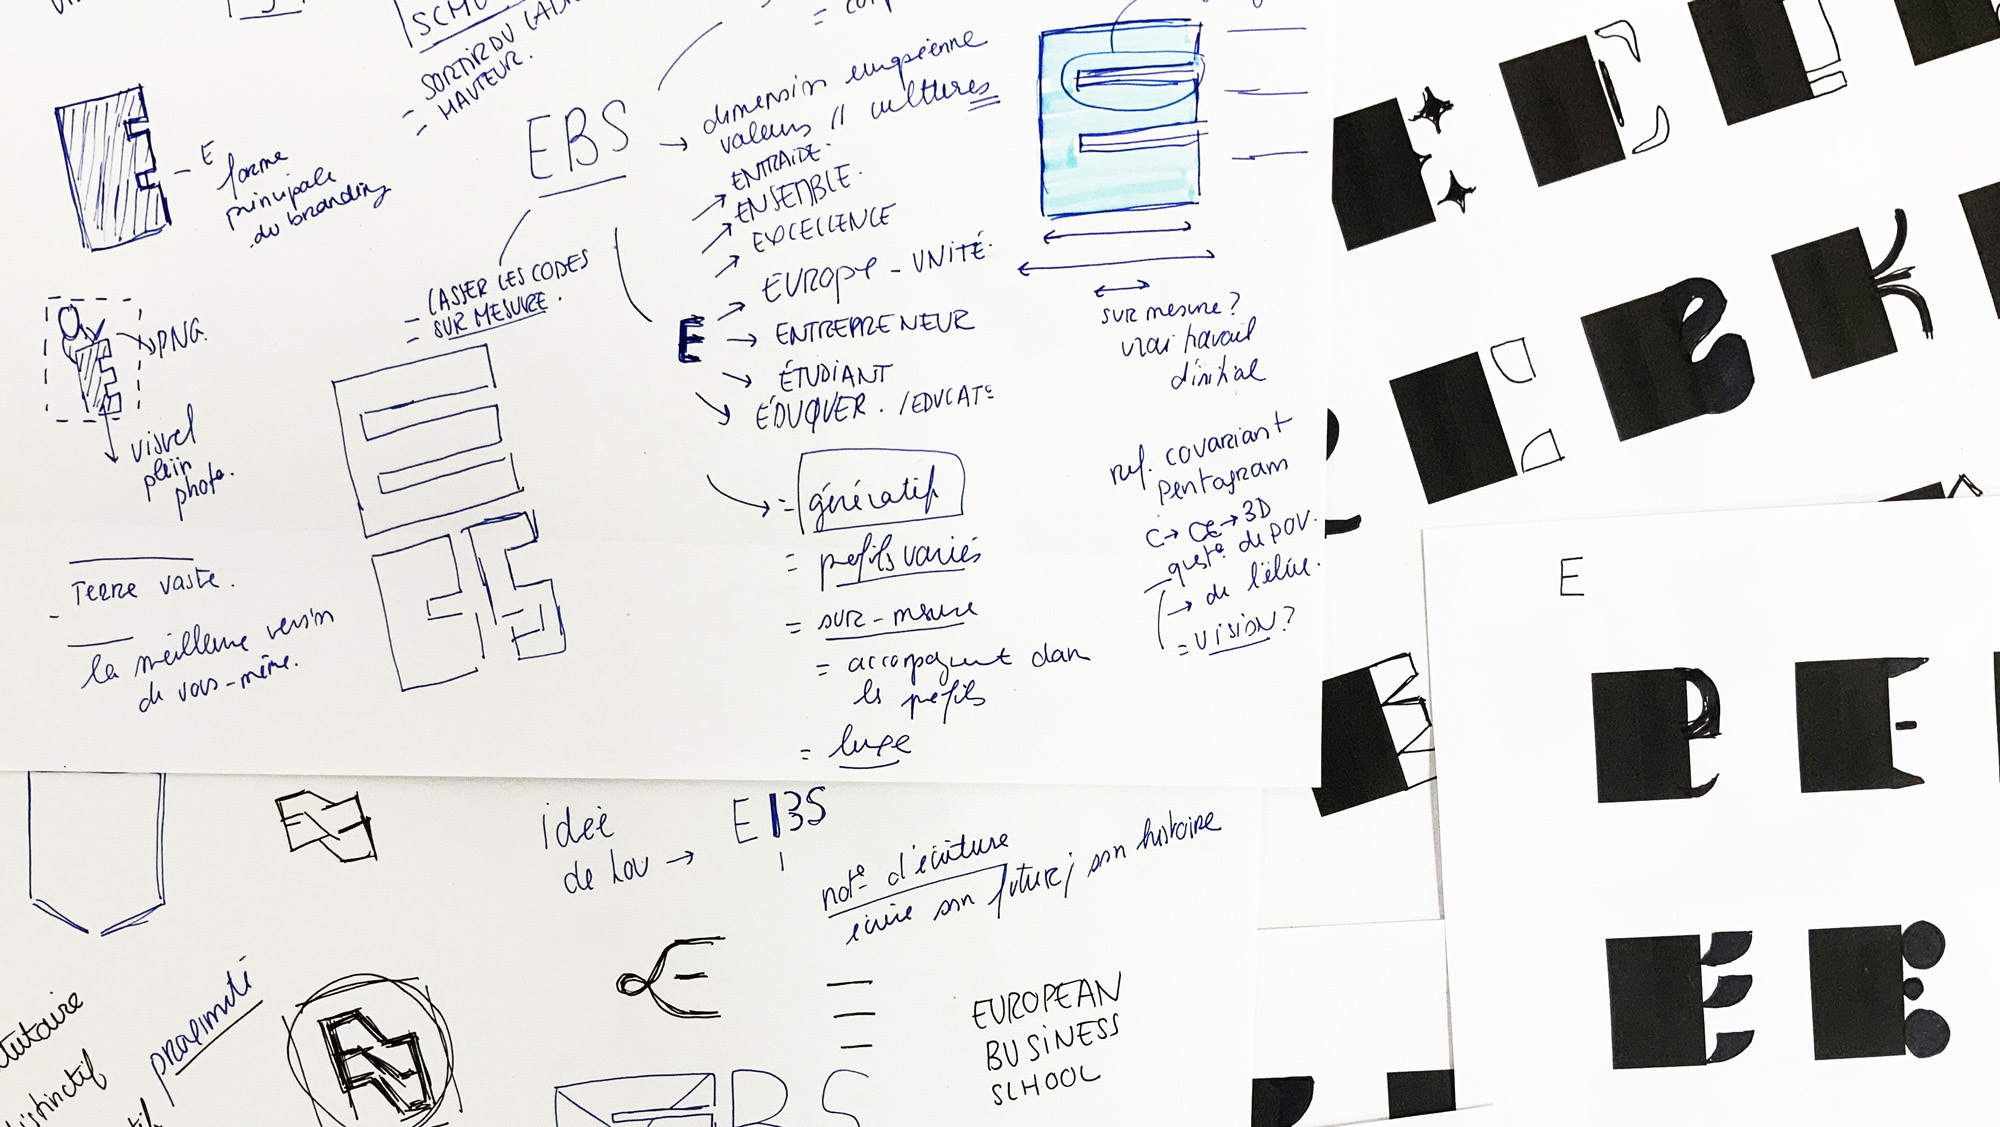 SORTIR DU
HAUTEUR.
E
forme
principale
du branding
PNG.
visuel
plein
photo.
EBS
CASSER LES CODES
SUR MESURE.
dimension européenne
valeurs // cultures
ENTRAIDE.
ENSEMBLE.
EXCELLENCE
EUROPE - UNITÉ.
E
ENTREPRENEUR
ÉTUDIANT
ÉDUQUER. /EDUCATº
= génératif
= profils variés
= sur-mesure
= accompagnement dans
les profils
= luxe
sur mesure?
vrai travail
d'initial
ref. covariant
pentagram
C→ CE→3D
questº de POV.
→ de l'élève.
= VISION?
Terre vaste.
la meilleure version
de vous-même.
idée
de Lou →
EBS
notº d'écriture
écrire son futur, son histoire
proximité
distinctif
EUROPEAN
BUSINESS
SCHOOL
BS
E